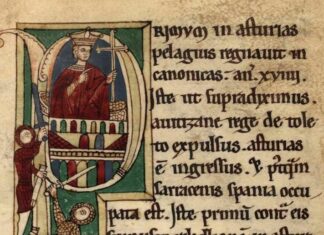 PRIMUM in asturias
pelagius regnauit in
canonicas· añ· xviiii·
Iste ut supradiximus
auitizane rege de tole
to expulsus· asturias
ē ingressus· & p̄tqm̄
sarraceni spania occu
pata est· Iste primū cont͛ eis
in asturias